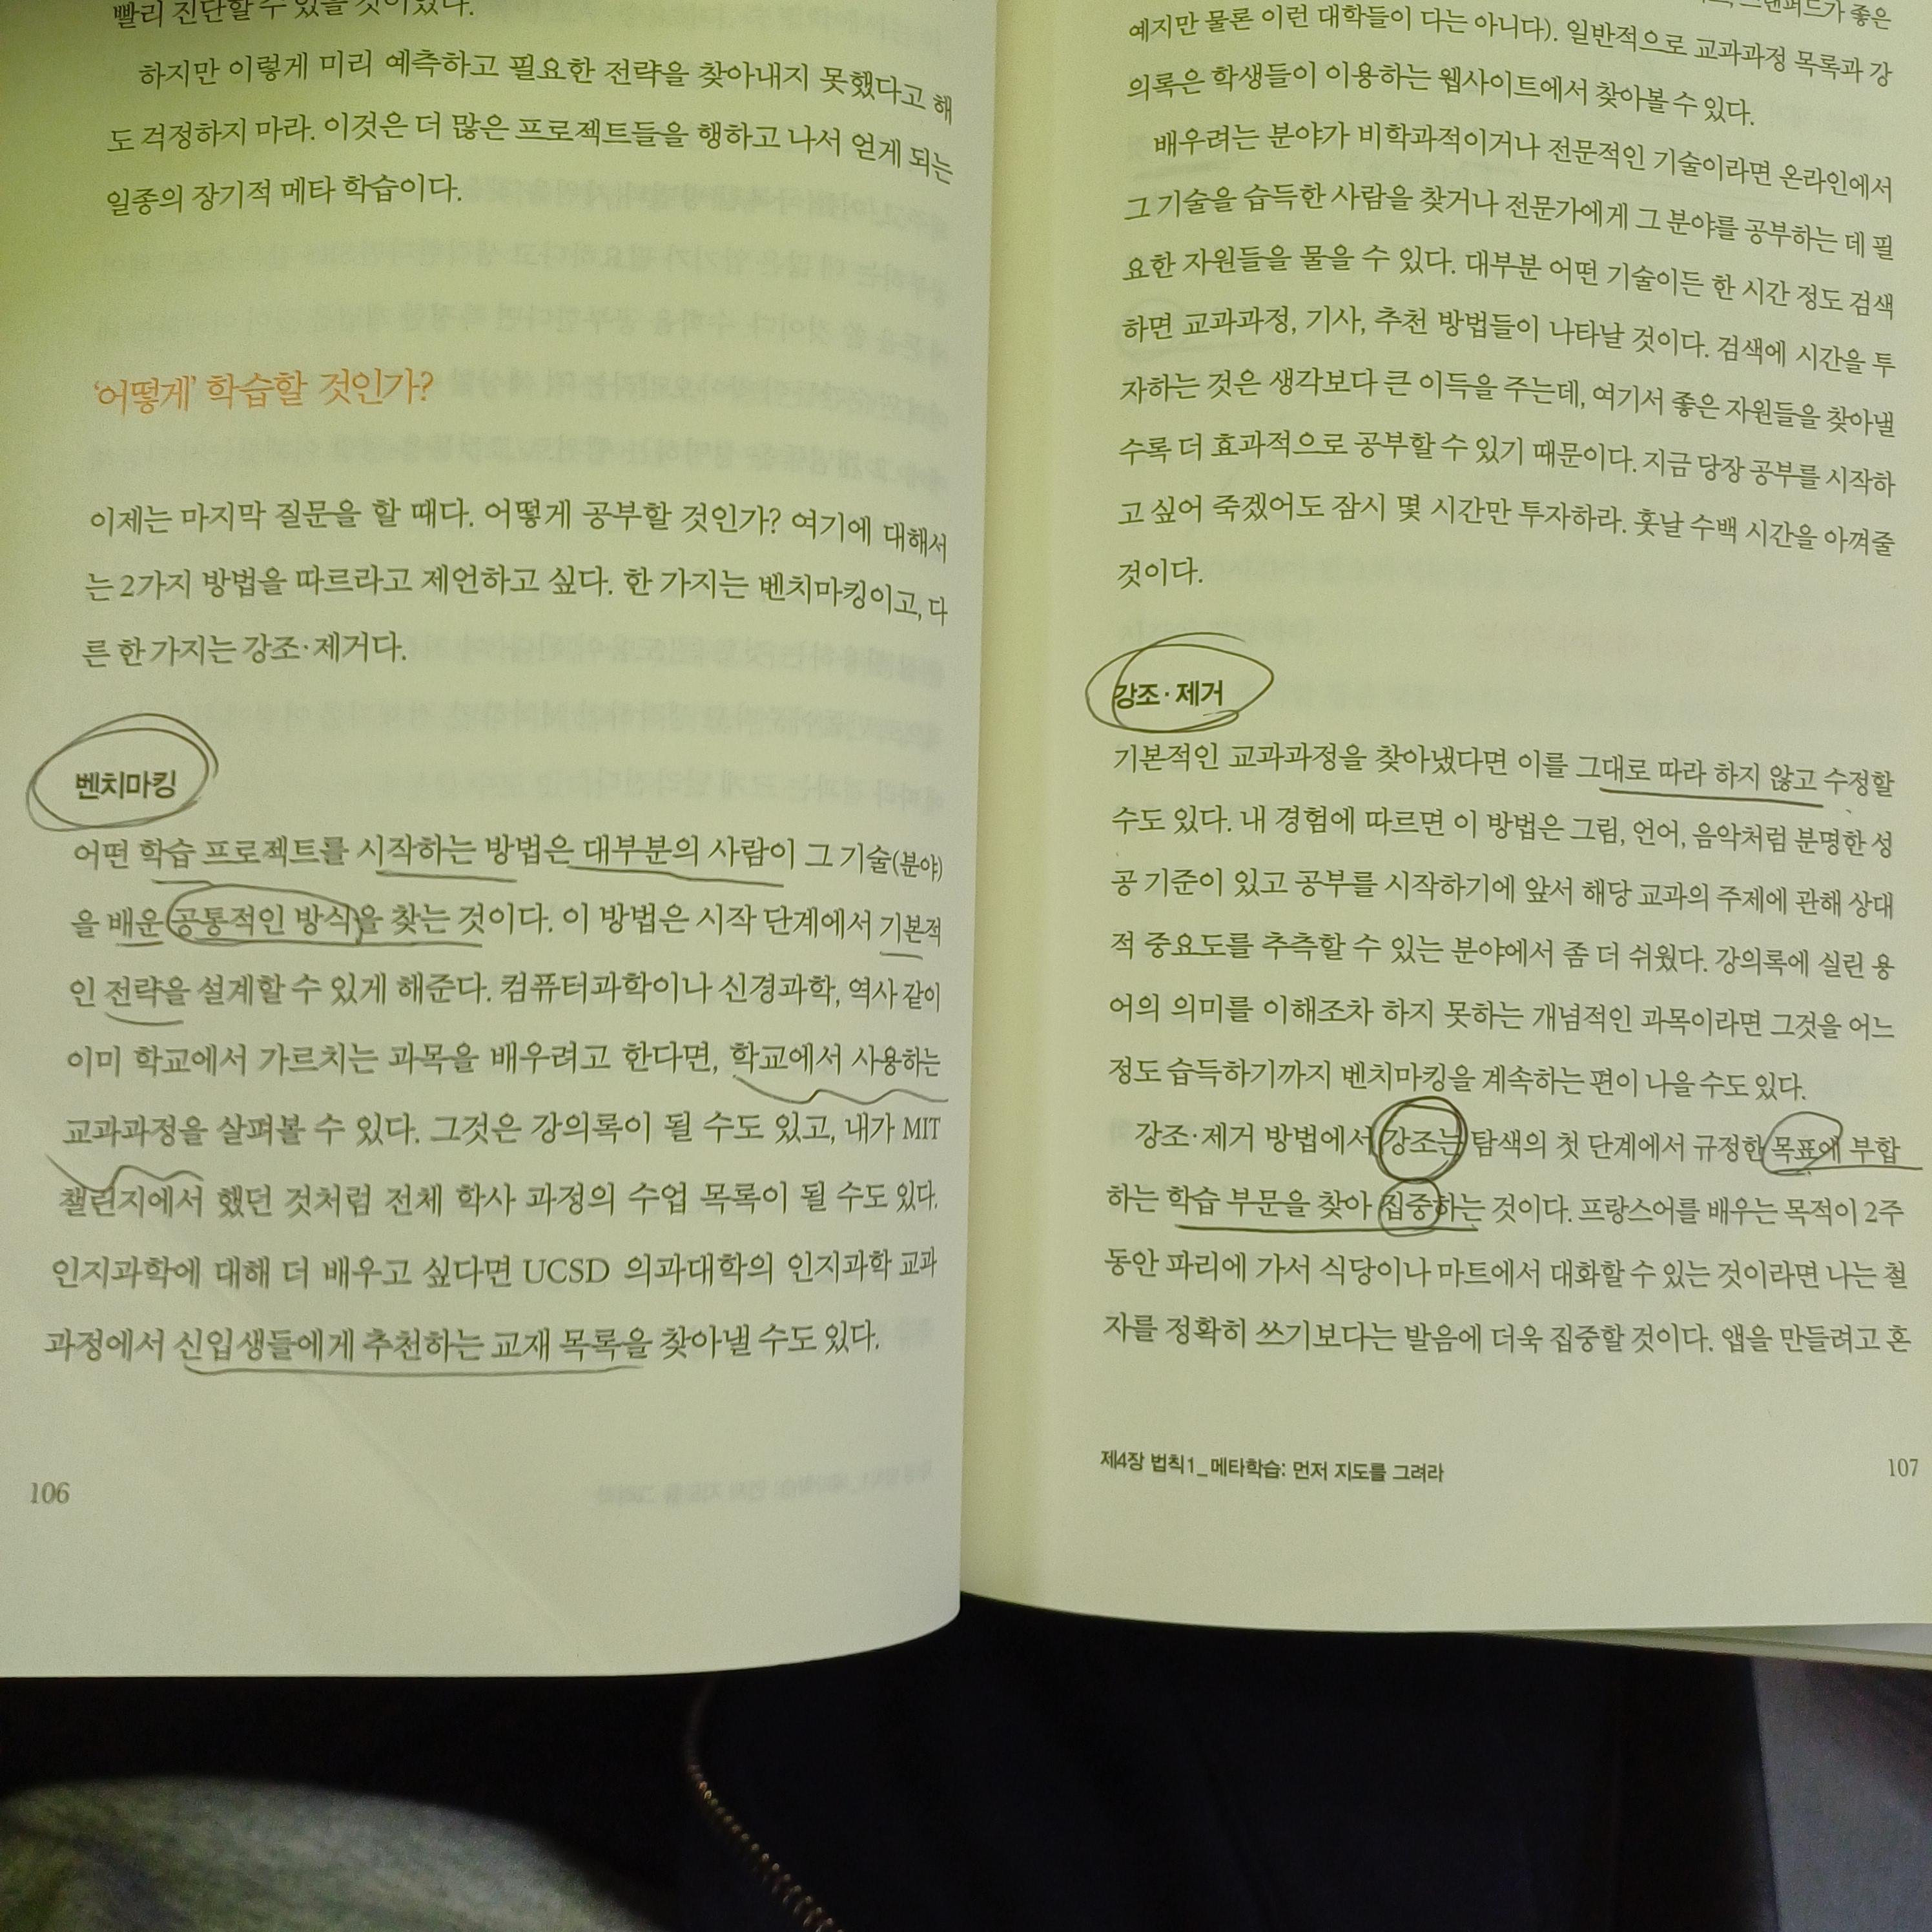 빨리 진단할 수 있을 것이었다.
하지만 이렇게 미리 예측하고 필요한 전략을 찾아내지 못했다고 해
도 걱정하지 마라. 이것은 더 많은 프로젝트들을 행하고 나서 얻게 되는
일종의 장기적 메타 학습이다.
‘어떻게’ 학습할 것인가?
이제는 마지막 질문을 할 때다. 어떻게 공부할 것인가? 여기에 대해서
는 2가지 방법을 따르라고 제언하고 싶다. 한 가지는 벤치마킹이고, 다
른 한 가지는 강조·제거다.
벤치마킹
어떤 학습 프로젝트를 시작하는 방법은 대부분의 사람이 그 기술(분야)
을 배운 공통적인 방식을 찾는 것이다. 이 방법은 시작 단계에서 기본적
인 전략을 설계할 수 있게 해준다. 컴퓨터과학이나 신경과학, 역사 같이
이미 학교에서 가르치는 과목을 배우려고 한다면, 학교에서 사용하는
교과과정을 살펴볼 수 있다. 그것은 강의록이 될 수도 있고, 내가 MIT
챌린지에서 했던 것처럼 전체 학사 과정의 수업 목록이 될 수도 있다.
인지과학에 대해 더 배우고 싶다면 UCSD 의과대학의 인지과학 교과
과정에서 신입생들에게 추천하는 교재 목록을 찾아낼 수도 있다.
106
가 좋은
예지만 물론 이런 대학들이 다는 아니다). 일반적으로 교과과정 목록과 강
의록은 학생들이 이용하는 웹사이트에서 찾아볼 수 있다.
배우려는 분야가 비학과적이거나 전문적인 기술이라면 온라인에서
그 기술을 습득한 사람을 찾거나 전문가에게 그 분야를 공부하는 데 필
요한 자원들을 물을 수 있다. 대부분 어떤 기술이든 한 시간 정도 검색
하면 교과과정, 기사, 추천 방법들이 나타날 것이다. 검색에 시간을 투
자하는 것은 생각보다 큰 이득을 주는데, 여기서 좋은 자원들을 찾아낼
수록 더 효과적으로 공부할 수 있기 때문이다. 지금 당장 공부를 시작하
고 싶어 죽겠어도 잠시 몇 시간만 투자하라. 훗날 수백 시간을 아껴줄
것이다.
강조·제거
기본적인 교과과정을 찾아냈다면 이를 그대로 따라 하지 않고 수정할
수도 있다. 내 경험에 따르면 이 방법은 그림, 언어, 음악처럼 분명한 성
공 기준이 있고 공부를 시작하기에 앞서 해당 교과의 주제에 관해 상대
적 중요도를 추측할 수 있는 분야에서 좀 더 쉬웠다. 강의록에 실린 용
어의 의미를 이해조차 하지 못하는 개념적인 과목이라면 그것을 어느
정도 습득하기까지 벤치마킹을 계속하는 편이 나을 수도 있다.
강조·제거 방법에서 강조는 탐색의 첫 단계에서 규정한 목표에 부합
하는 학습 부문을 찾아 집중하는 것이다. 프랑스어를 배우는 목적이 2주
동안 파리에 가서 식당이나 마트에서 대화할 수 있는 것이라면 나는 철
자를 정확히 쓰기보다는 발음에 더욱 집중할 것이다. 앱을 만들려고 혼
제4장 법칙1_메타학습: 먼저 지도를 그려라
107